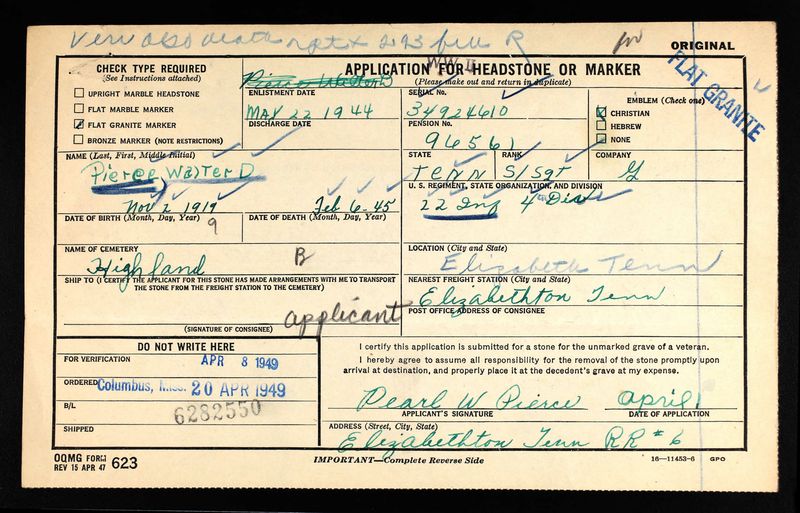 Veri also death
R
for
ORIGINAL
WW II
CHECK TYPE REQUIRED
(See Instructions attached)
UPRIGHT MARBLE HEADSTONE
FLAT MARBLE MARKER
FLAT GRANITE MARKER
BRONZE MARKER (NOTE RESTRICTIONS)
Pierce Walter D
APPLICATION FOR HEADSTONE OR MARKER
(Please make out and return in duplicate)
FLAT GRANITE
ENLISTMENT DATE
MAY 22 1944
DISCHARGE DATE
SERIAL No.
34924610
PENSION No.
96561
EMBLEM (Check one)
CHRISTIAN
HEBREW
NONE
NAME (Last, First, Middle Initial)
Pierce Walter D
STATE
TENN
RANK
S/Sgt
COMPANY
G
Nov 2 1919
DATE OF BIRTH (Month, Day, Year)
9
Feb 6-45
DATE OF DEATH (Month, Day, Year)
U. S. REGIMENT, STATE ORGANIZATION, AND DIVISION
22 Inf 4th Div
NAME OF CEMETERY
Highland
B
LOCATION (City and State)
Elizabeth Tenn
SHIP TO (I CERTIFY THE APPLICANT FOR THIS STONE HAS MADE ARRANGEMENTS WITH ME TO TRANSPORT
THE STONE FROM THE FREIGHT STATION TO THE CEMETERY)
applicant
(SIGNATURE OF CONSIGNEE)
NEAREST FREIGHT STATION (City and State)
Elizabethton Tenn
POST OFFICE ADDRESS OF CONSIGNEE
DO NOT WRITE HERE
FOR VERIFICATION
APR 8 1949
ORDERED
Columbus, Miss. 20 APR 1949
B/L
6282550
SHIPPED
I certify this application is submitted for a stone for the unmarked grave of a veteran.
I hereby agree to assume all responsibility for the removal of the stone promptly upon
arrival at destination, and properly place it at the decedent's grave at my expense.
Pearl W Pierce
APPLICANT'S SIGNATURE
April 1
DATE OF APPLICATION
ADDRESS (Street, City, State)
Elizabethton Tenn RR #6
OQMG FORM
REV 15 APR 47 623
IMPORTANT—Complete Reverse Side
16—11453-6 GPO